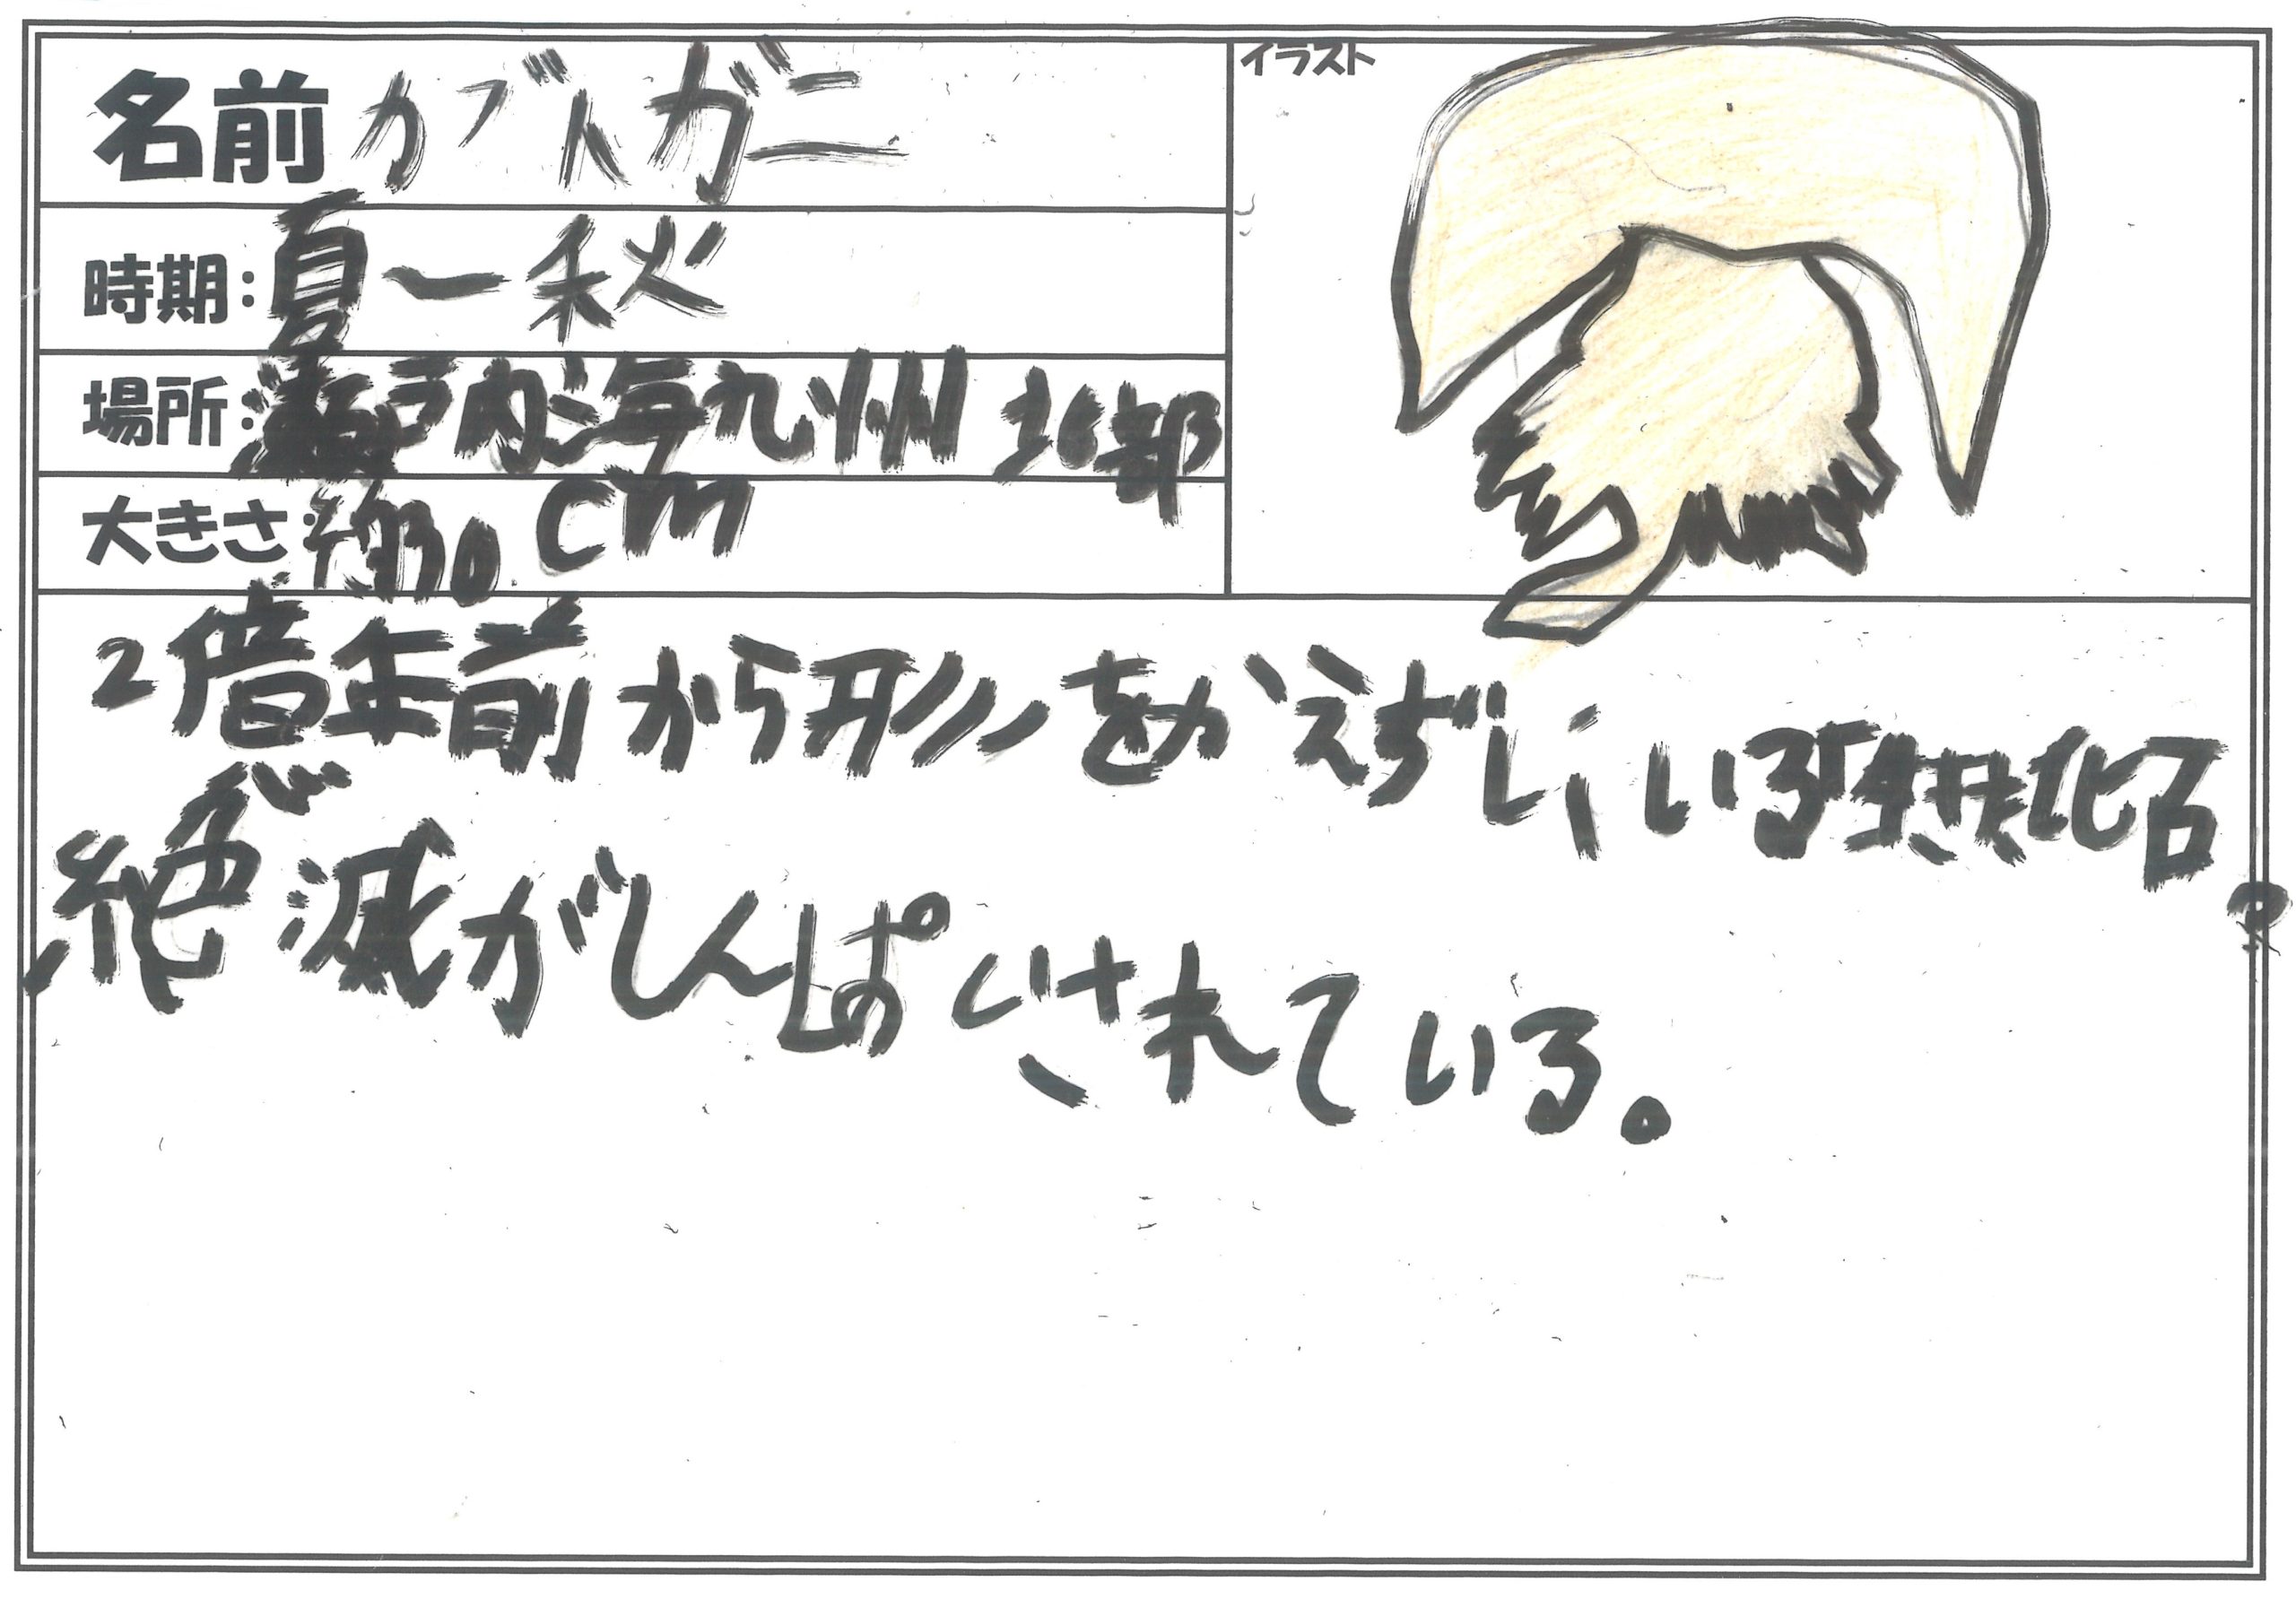 名前 カブトガニ
イラスト
時期:夏ー秋
場所:瀬戸内海九州北部
大きさ:約30cm
2億年前から形をかえずにいる生きた化石
絶滅がしんぱいされている。